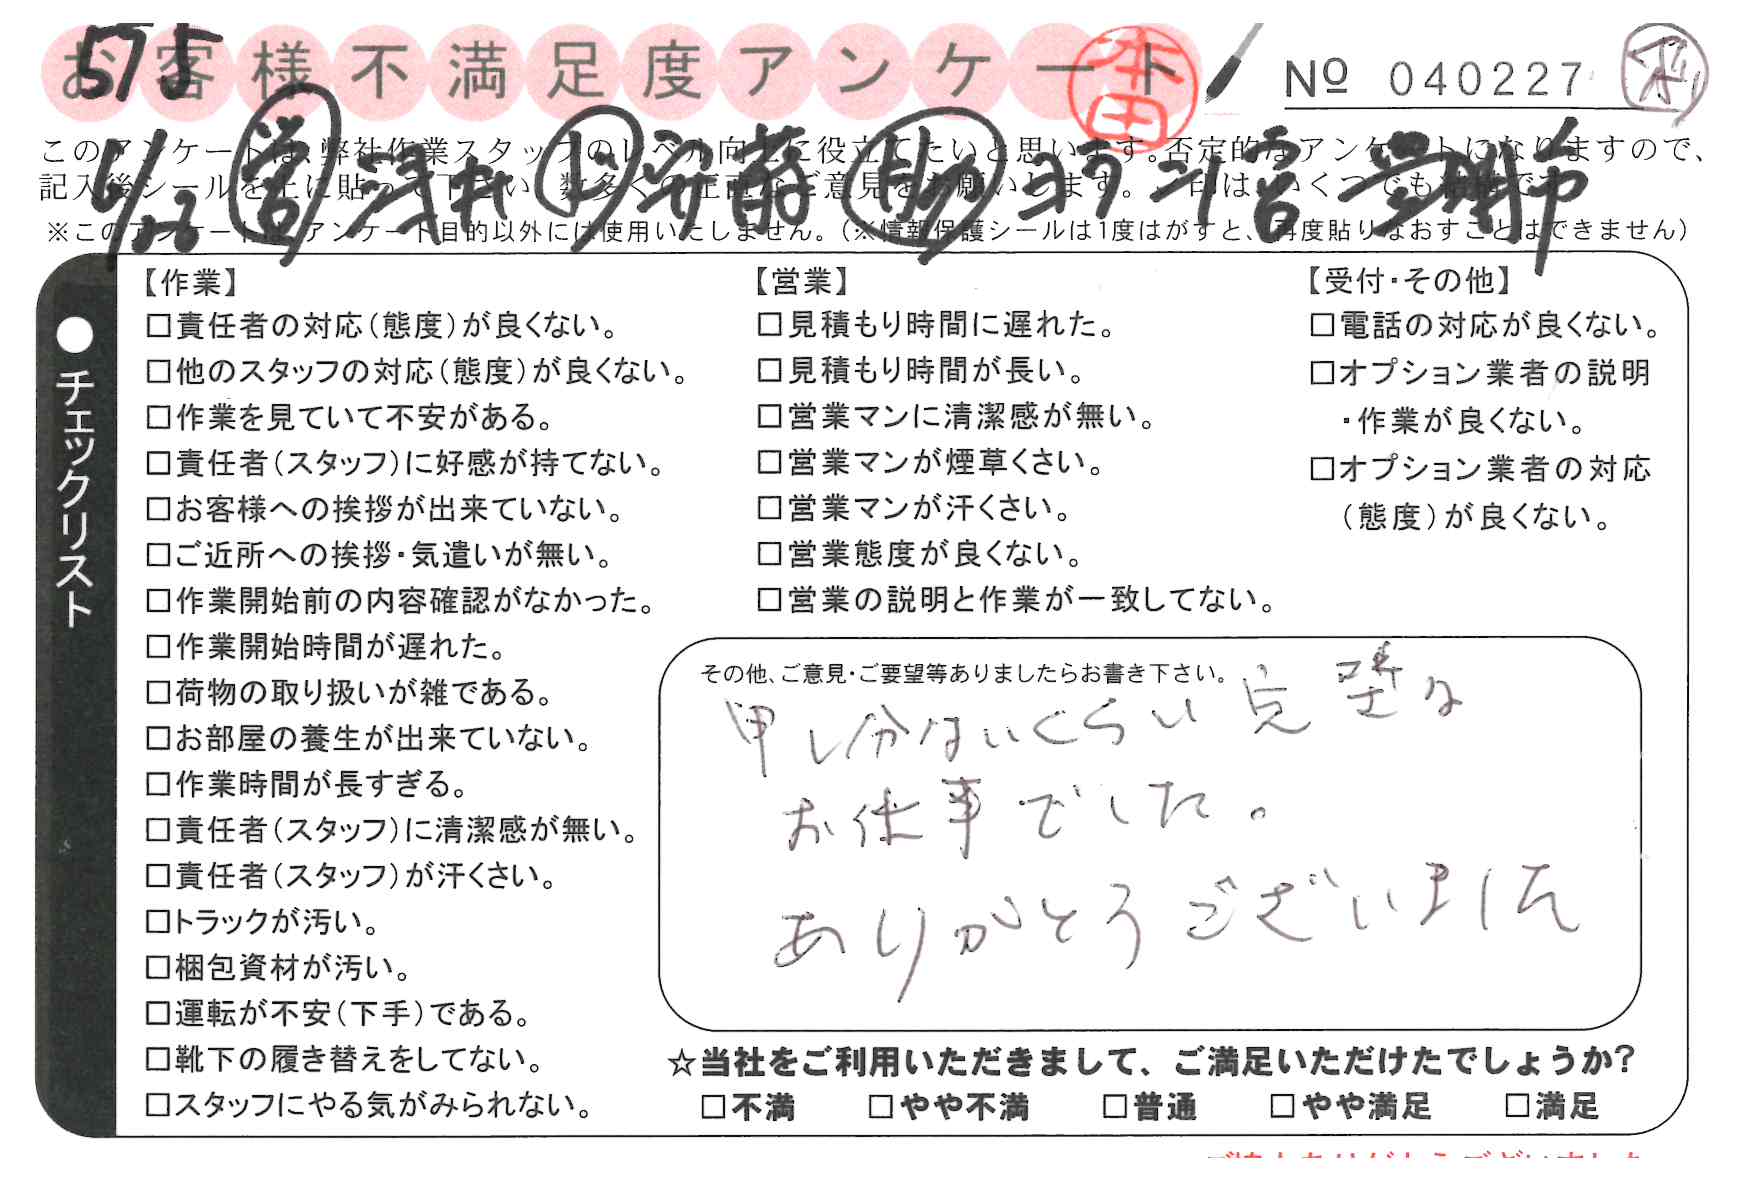 お客様不満足度アンケート
575
本田
№ 040227
このアンケートは、弊社作業スタッフのレベル向上に役立てたいと思います。否定的なアンケートになりますので、
記入後シールを上に貼って下さい。数多くの正直なご意見をお願いします。レ印は、いくつでも結構です。
6/22 営 浅井 ド 安前 助
※このアンケートは、アンケート目的以外には使用いたしません。(※情報保護シールは1度はがすと、再度貼りなおすことはできません)
●チェックリスト
【作業】
□責任者の対応(態度)が良くない。
□他のスタッフの対応(態度)が良くない。
□作業を見ていて不安がある。
□責任者(スタッフ)に好感が持てない。
□お客様への挨拶が出来ていない。
□ご近所への挨拶・気遣いが無い。
□作業開始前の内容確認がなかった。
□作業開始時間が遅れた。
□荷物の取り扱いが雑である。
□お部屋の養生が出来ていない。
□作業時間が長すぎる。
□責任者(スタッフ)に清潔感が無い。
□責任者(スタッフ)が汗くさい。
□トラックが汚い。
□梱包資材が汚い。
□運転が不安(下手)である。
□靴下の履き替えをしてない。
□スタッフにやる気がみられない。
【営業】
□見積もり時間に遅れた。
□見積もり時間が長い。
□営業マンに清潔感が無い。
□営業マンが煙草くさい。
□営業マンが汗くさい。
□営業態度が良くない。
□営業の説明と作業が一致してない。
【受付・その他】
□電話の対応が良くない。
□オプション業者の説明
・作業が良くない。
□オプション業者の対応
(態度)が良くない。
その他、ご意見・ご要望等ありましたらお書き下さい。
申し分ないくらい完璧な
お仕事でした。
ありがとうございました
☆当社をご利用いただきまして、ご満足いただけたでしょうか?
□不満 □やや不満 □普通 □やや満足 □満足